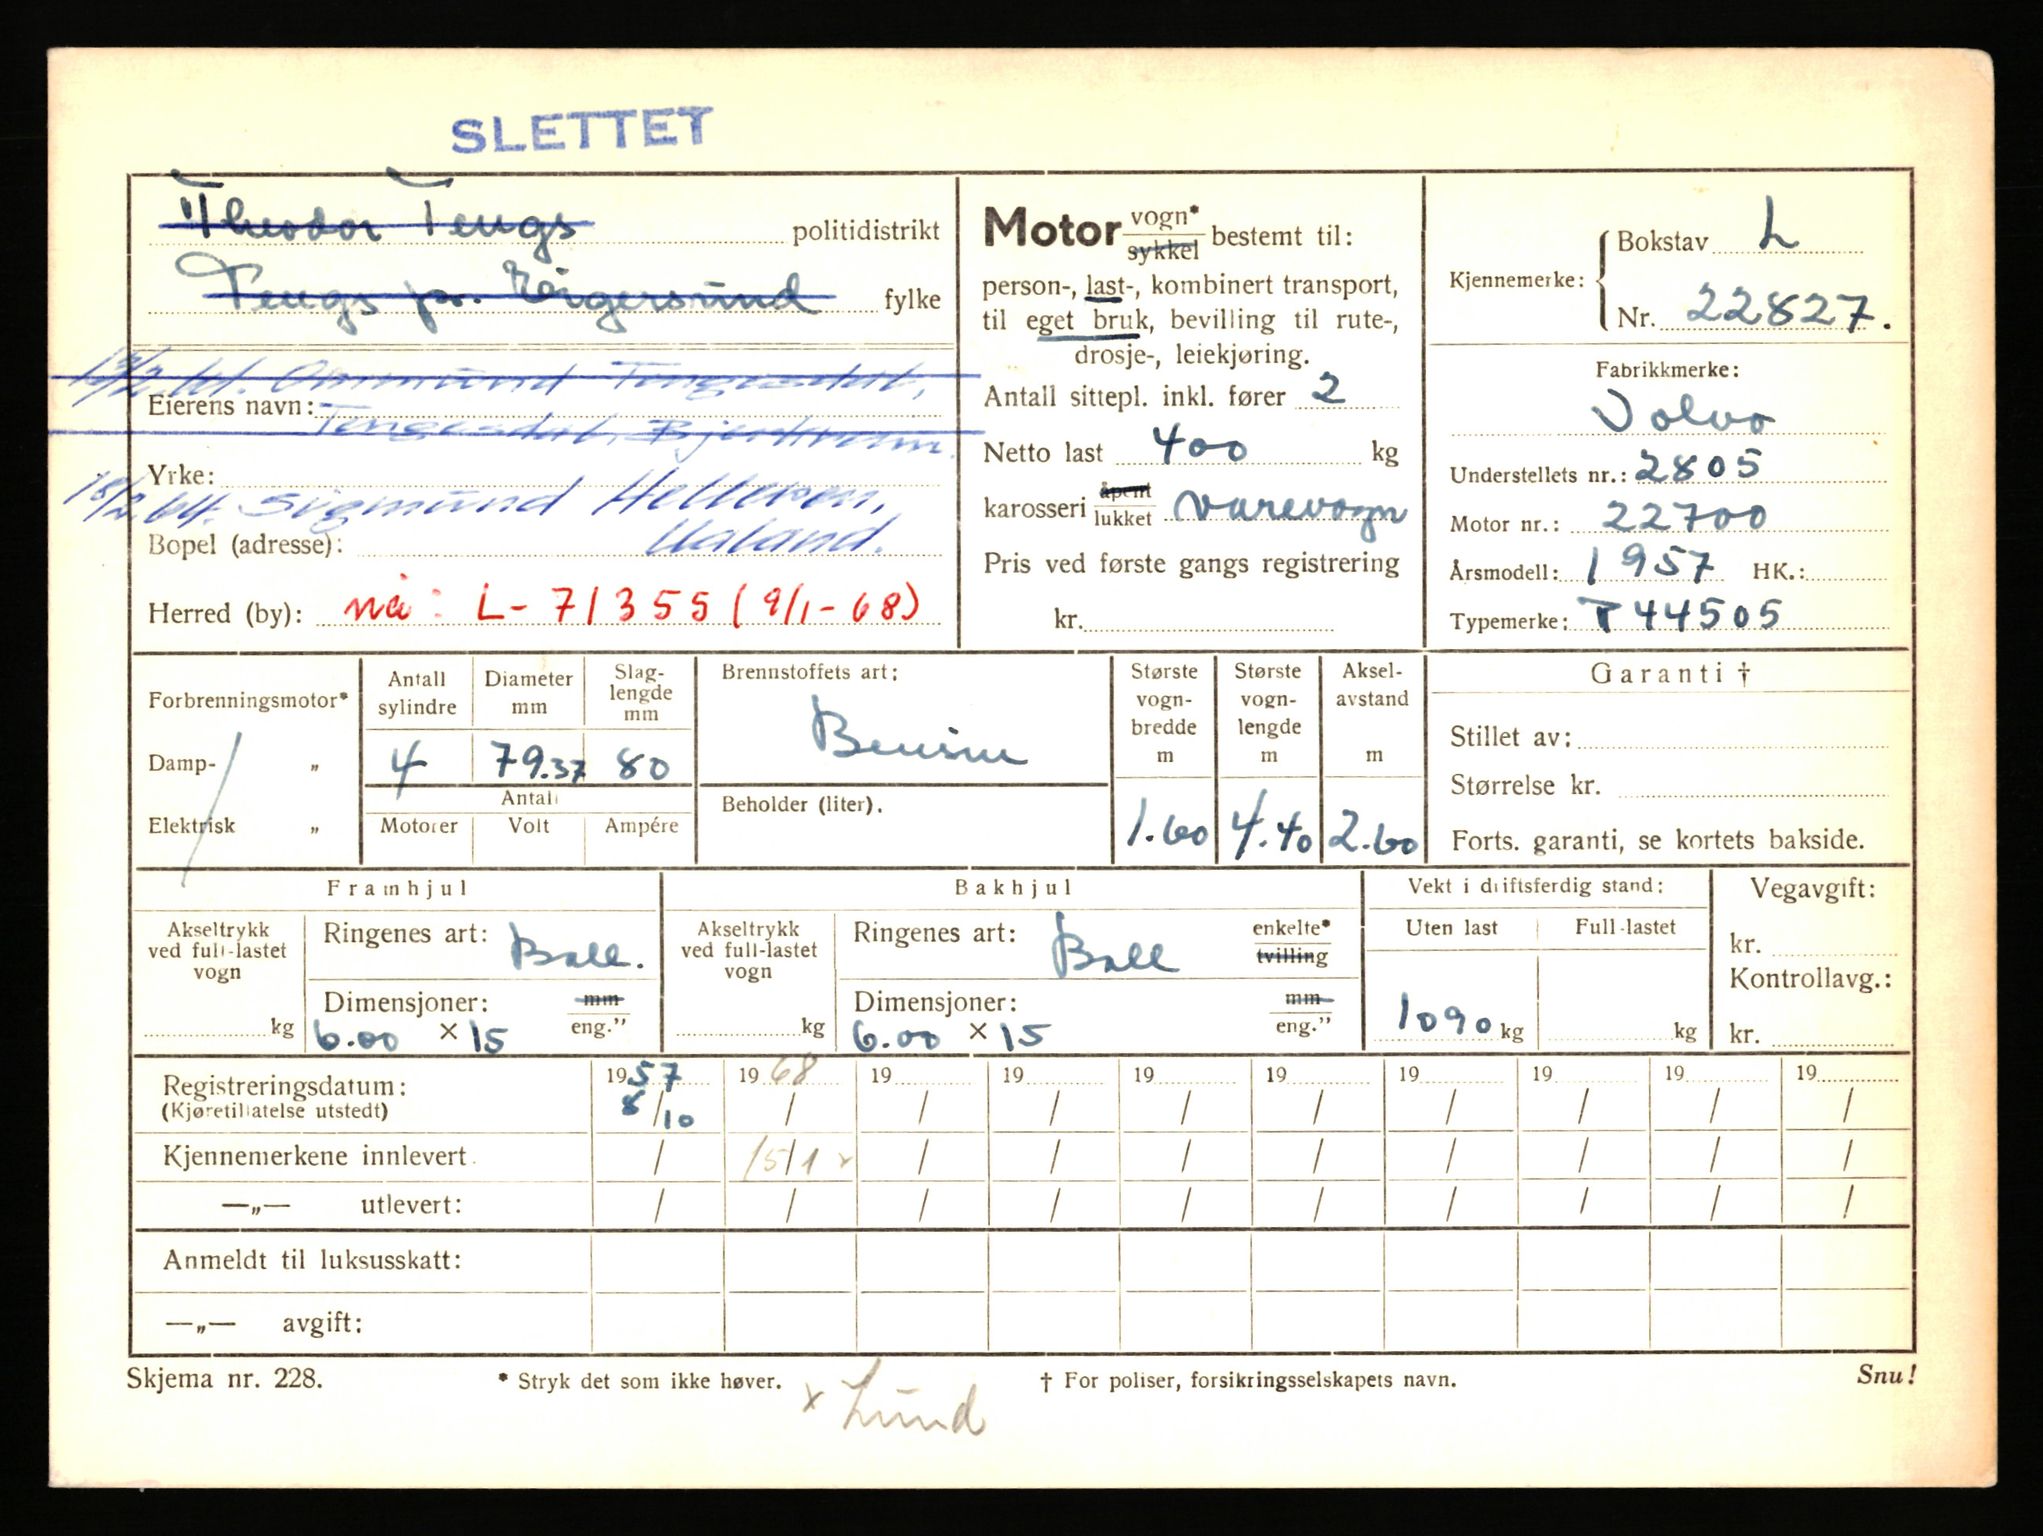 SLETTET
Theodor Tengs politidistrikt
Tengs pr. Eigersund fylke
13/2 61. Osmund Tengesdal,
Eierens navn:
Tengesdal, Bjerkreim.
Yrke:
18/2 64. Sigmund Helleren,
Bopel (adresse): Ualand.
Herred (by): nå: L-71355 (9/1-68)
Motor vogn* sykkel bestemt til:
person-, last-, kombinert transport,
til eget bruk, bevilling til rute-,
drosje-, leiekjøring.
Antall sittepl. inkl. fører 2
Netto last 400 kg
karosseri åpent lukket varevogn
Pris ved første gangs registrering
kr.
Kjennemerke: Bokstav L
Nr. 22827.
Fabrikkmerke:
Volvo
Understellets nr.: 2805
Motor nr.: 22700
Årsmodell: 1957 HK.:
Typemerke: P44505
Forbrenningsmotor*
Damp- „
Elektrisk „
Antall sylindre 4
Diameter mm 79.37
Slag-lengde mm 80
Antall
Motorer Volt Ampére
Brennstoffets art:
Bensin
Beholder (liter).
Største vogn-bredde m 1.60
Største vogn-lengde m 4.40
Aksel-avstand m 2.60
Garanti †
Stillet av:
Størrelse kr.
Forts. garanti, se kortets bakside.
Framhjul
Akseltrykk ved full-lastet vogn
kg
Ringenes art: Ball.
Dimensjoner: mm
6.00 × 15 eng.”
Bakhjul
Akseltrykk ved full-lastet vogn
kg
Ringenes art: Ball enkelte* tvilling
Dimensjoner: mm
6.00 × 15 eng.”
Vekt i driftsferdig stand:
Uten last Full-lastet
1090 kg kg
Vegavgift:
kr.
Kontrollavg.:
kr.
Registreringsdatum: 1957 1968 19 19 19 19 19 19 19 19
(Kjøretillatelse utstedt) 8/10 / / / / / / / / /
Kjennemerkene innlevert / 15/1 x / / / / / / / /
—„— utlevert: / / / / / / / / / /
Anmeldt til luksusskatt:
—„— avgift:
Skjema nr. 228. * Stryk det som ikke høver. † For poliser, forsikringsselskapets navn. Snu!
x Lund